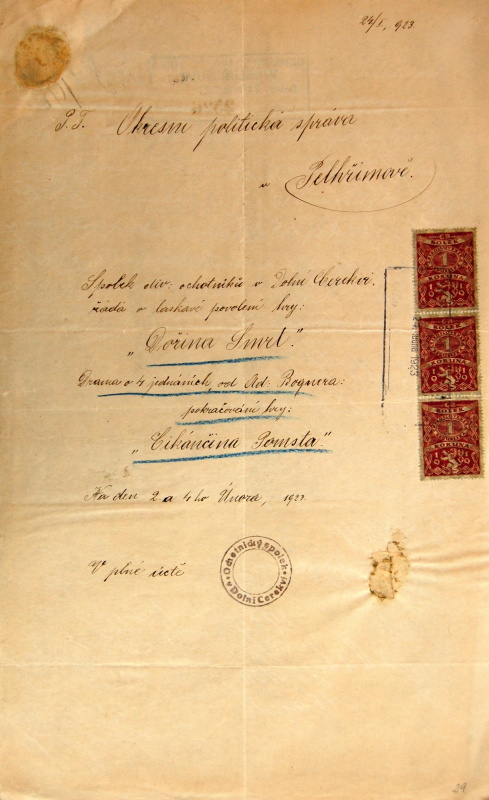 24/I. 1923.
P.T. Okresní politická správa
v Pelhřimově.
Spolek div: ochotníků v Dolní Cerekvi
žádá o laskavé povolení hry:
"Dořina Smrt."
Drama o 4 jednáních, od Ad: Bognera:
pokračování hry:
"Cikánčina Pomsta."
Na den 2 a 4ho Února, 1923.
V plné úctě
Ochotnický spolek
v Dolní Cerekvi
KOLEK
1
KORUNA
KOLEK
1
KORUNA
KOLEK
1
KORUNA
1923
29